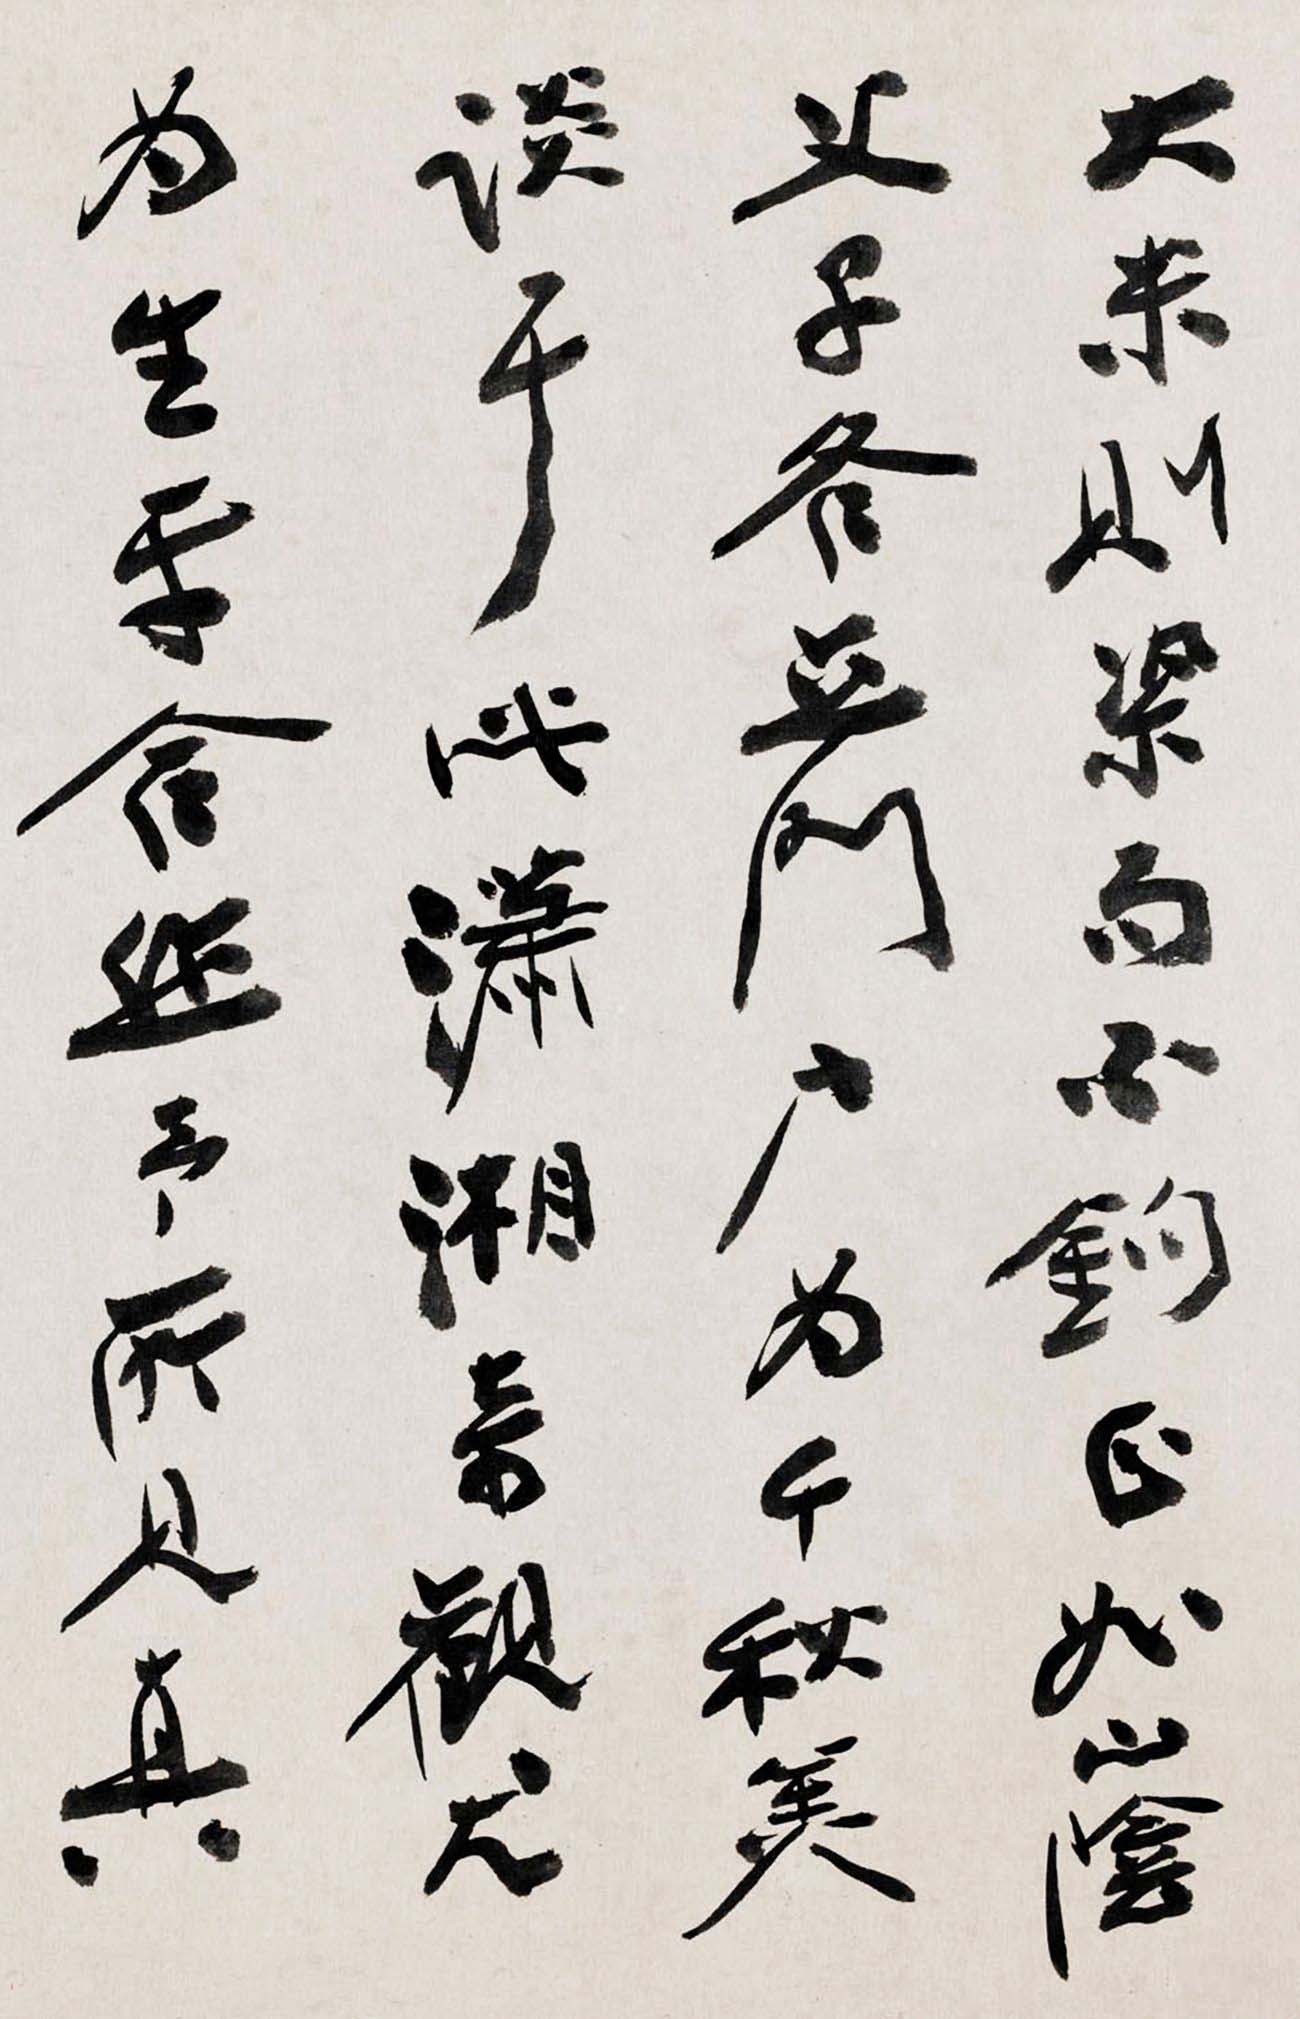 大米則梁而不鉤正如山陰
父子各立門戶为千秋美
談于此瀟湘奇觀尤
为生平合迹予所見真